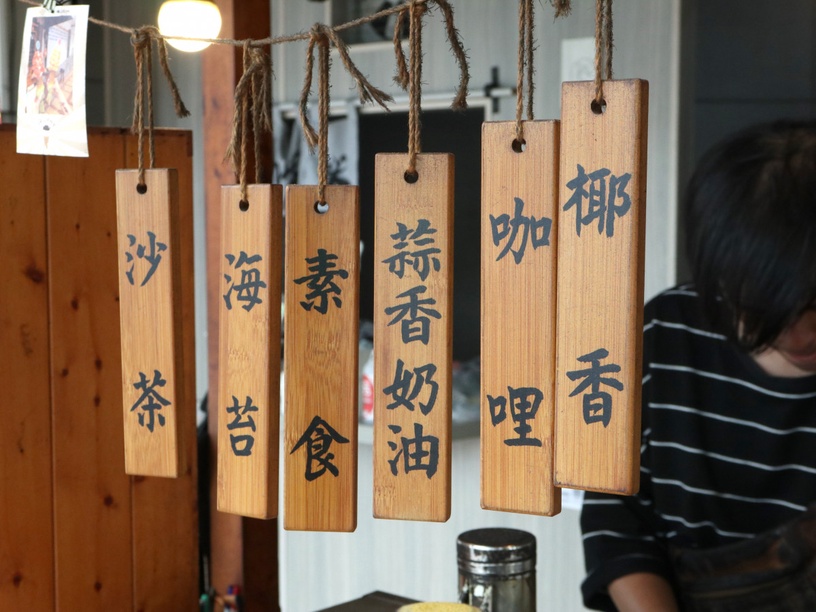 沙茶
海苔
素食
蒜香奶油
咖哩
椰香